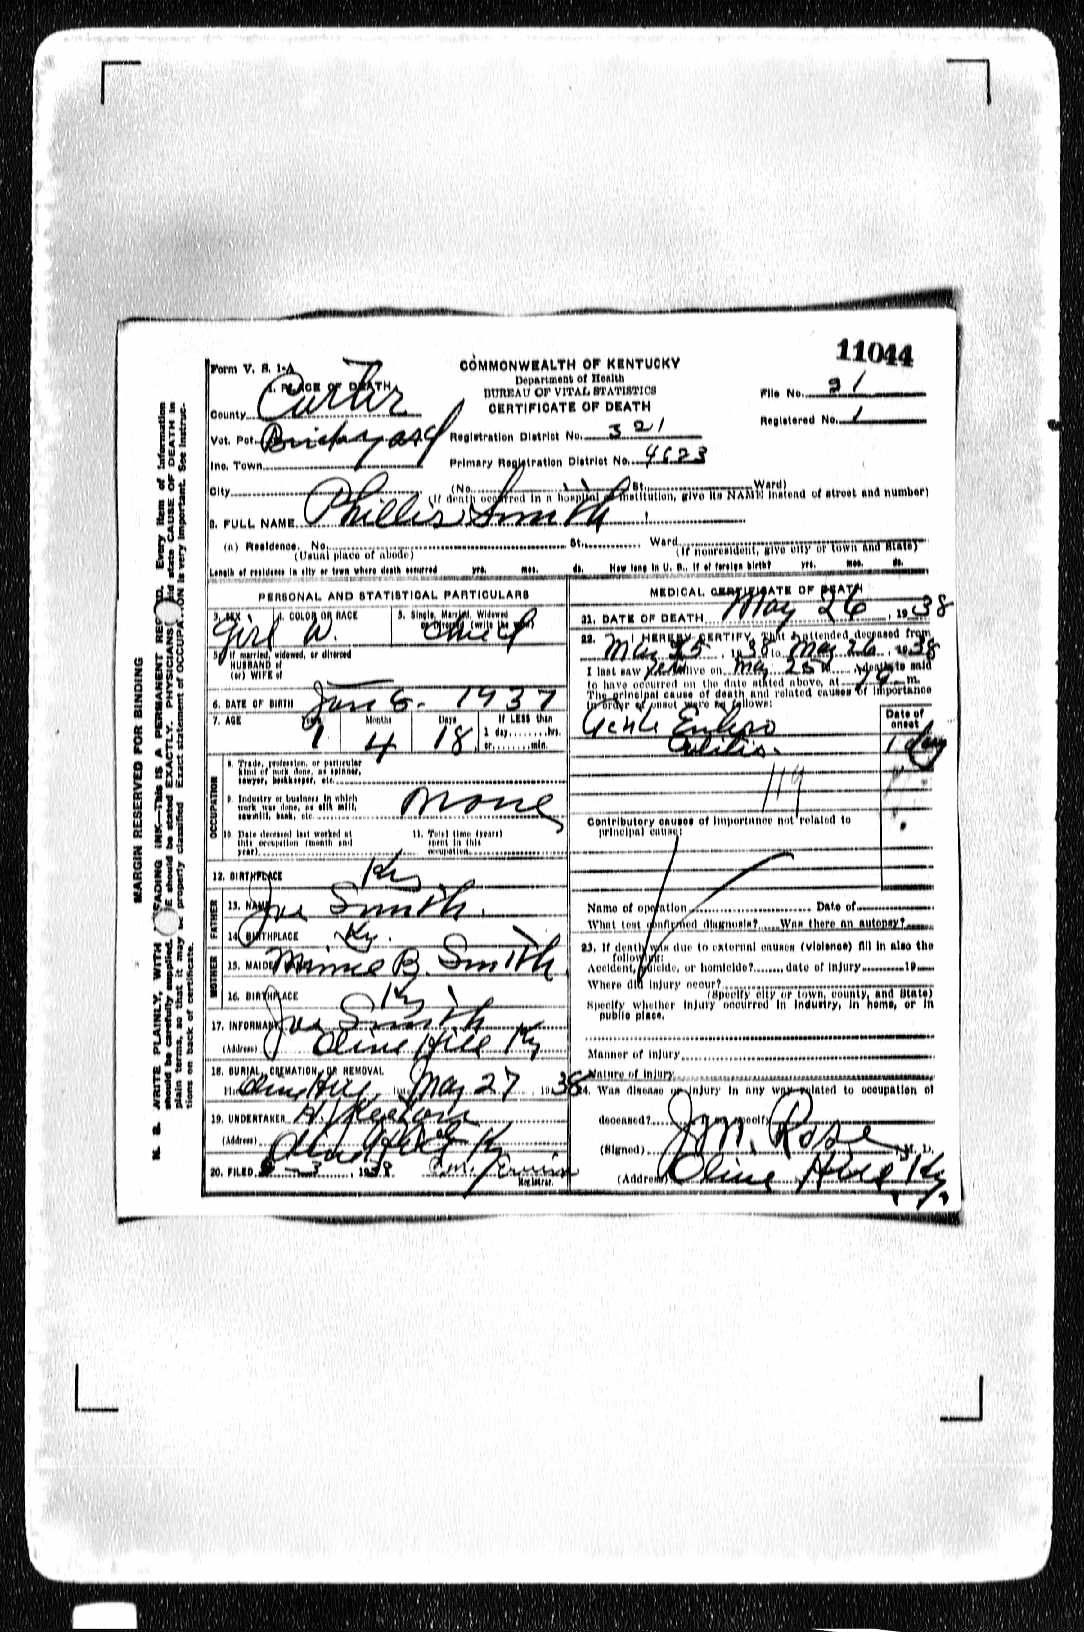 11044
Form V. S. 1-A
COMMONWEALTH OF KENTUCKY
Department of Health
BUREAU OF VITAL STATISTICS
CERTIFICATE OF DEATH
1. PLACE OF DEATH
File No. 21
County Carter
Registered No. 1
Vot. Pct. Brickyard
Registration District No. 321
Inc. Town
Primary Registration District No. 4623
City (No. St. Ward)
(If death occurred in a hospital or institution, give its NAME instead of street and number)
2. FULL NAME Phillis Smith
(a) Residence. No. St. Ward
(Usual place of abode) (If nonresident, give city or town and State)
Length of residence in city or town where death occurred yrs. mos. ds. How long in U. S., if of foreign birth? yrs. mos. ds.
PERSONAL AND STATISTICAL PARTICULARS
3. SEX 4. COLOR OR RACE 5. Single, Married, Widowed or Divorced (write the word)
Girl W. Child
5. If married, widowed, or divorced
HUSBAND of
(or) WIFE of
6. DATE OF BIRTH Jan 8- 1937
7. AGE Years Months Days If LESS than
1 4 18 1 day hrs.
or min.
OCCUPATION
8. Trade, profession, or particular
kind of work done, as spinner,
sawyer, bookkeeper, etc.
9. Industry or business in which
work was done, as silk mill,
sawmill, bank, etc. None
10. Date deceased last worked at
this occupation (month and
year)
11. Total time (years)
spent in this
occupation
12. BIRTHPLACE Ky
FATHER
13. NAME Joe Smith.
14. BIRTHPLACE Ky.
MOTHER
15. MAIDEN Minnie B. Smith
16. BIRTHPLACE Ky
17. INFORMANT Joe Smith
(Address) Olive Hill Ky
18. BURIAL, CREMATION, OR REMOVAL
Olive Hill May 27, 1938
19. UNDERTAKER
(Address) Olive Hill Ky
20. FILED 6-3, 1938
Registrar.
MEDICAL CERTIFICATE OF DEATH
21. DATE OF DEATH May 26, 1938
22. I HEREBY CERTIFY, That I attended deceased from
May 25, 1938 to May 26, 1938
I last saw her alive on May 25, death is said
to have occurred on the date stated above, at m.
The principal cause of death and related causes of importance
in order of onset were as follows:
Acute Entero
Colitis.
Date of
onset
1 day
119
Contributory causes of importance not related to
principal cause:
Name of operation Date of
What test confirmed diagnosis? Was there an autopsy?
23. If death was due to external causes (violence) fill in also the
following:
Accident, suicide, or homicide? date of injury 19
Where did injury occur?
(Specify city or town, county, and State)
Specify whether injury occurred in industry, in home, or in
public place.
Manner of injury
Nature of injury
24. Was disease or injury in any way related to occupation of
deceased? specify
(Signed) J M. Rose M. D.
(Address) Olive Hill, Ky.
MARGIN RESERVED FOR BINDING
N. B. WRITE PLAINLY, WITH UNFADING INK—This IS A PERMANENT RECORD. Every item of information
should be carefully supplied. AGE should be stated EXACTLY. PHYSICIANS should state CAUSE OF DEATH in
plain terms, so that it may be properly classified. Exact statement of OCCUPATION is very important. See instruc-
tions on back of certificate.